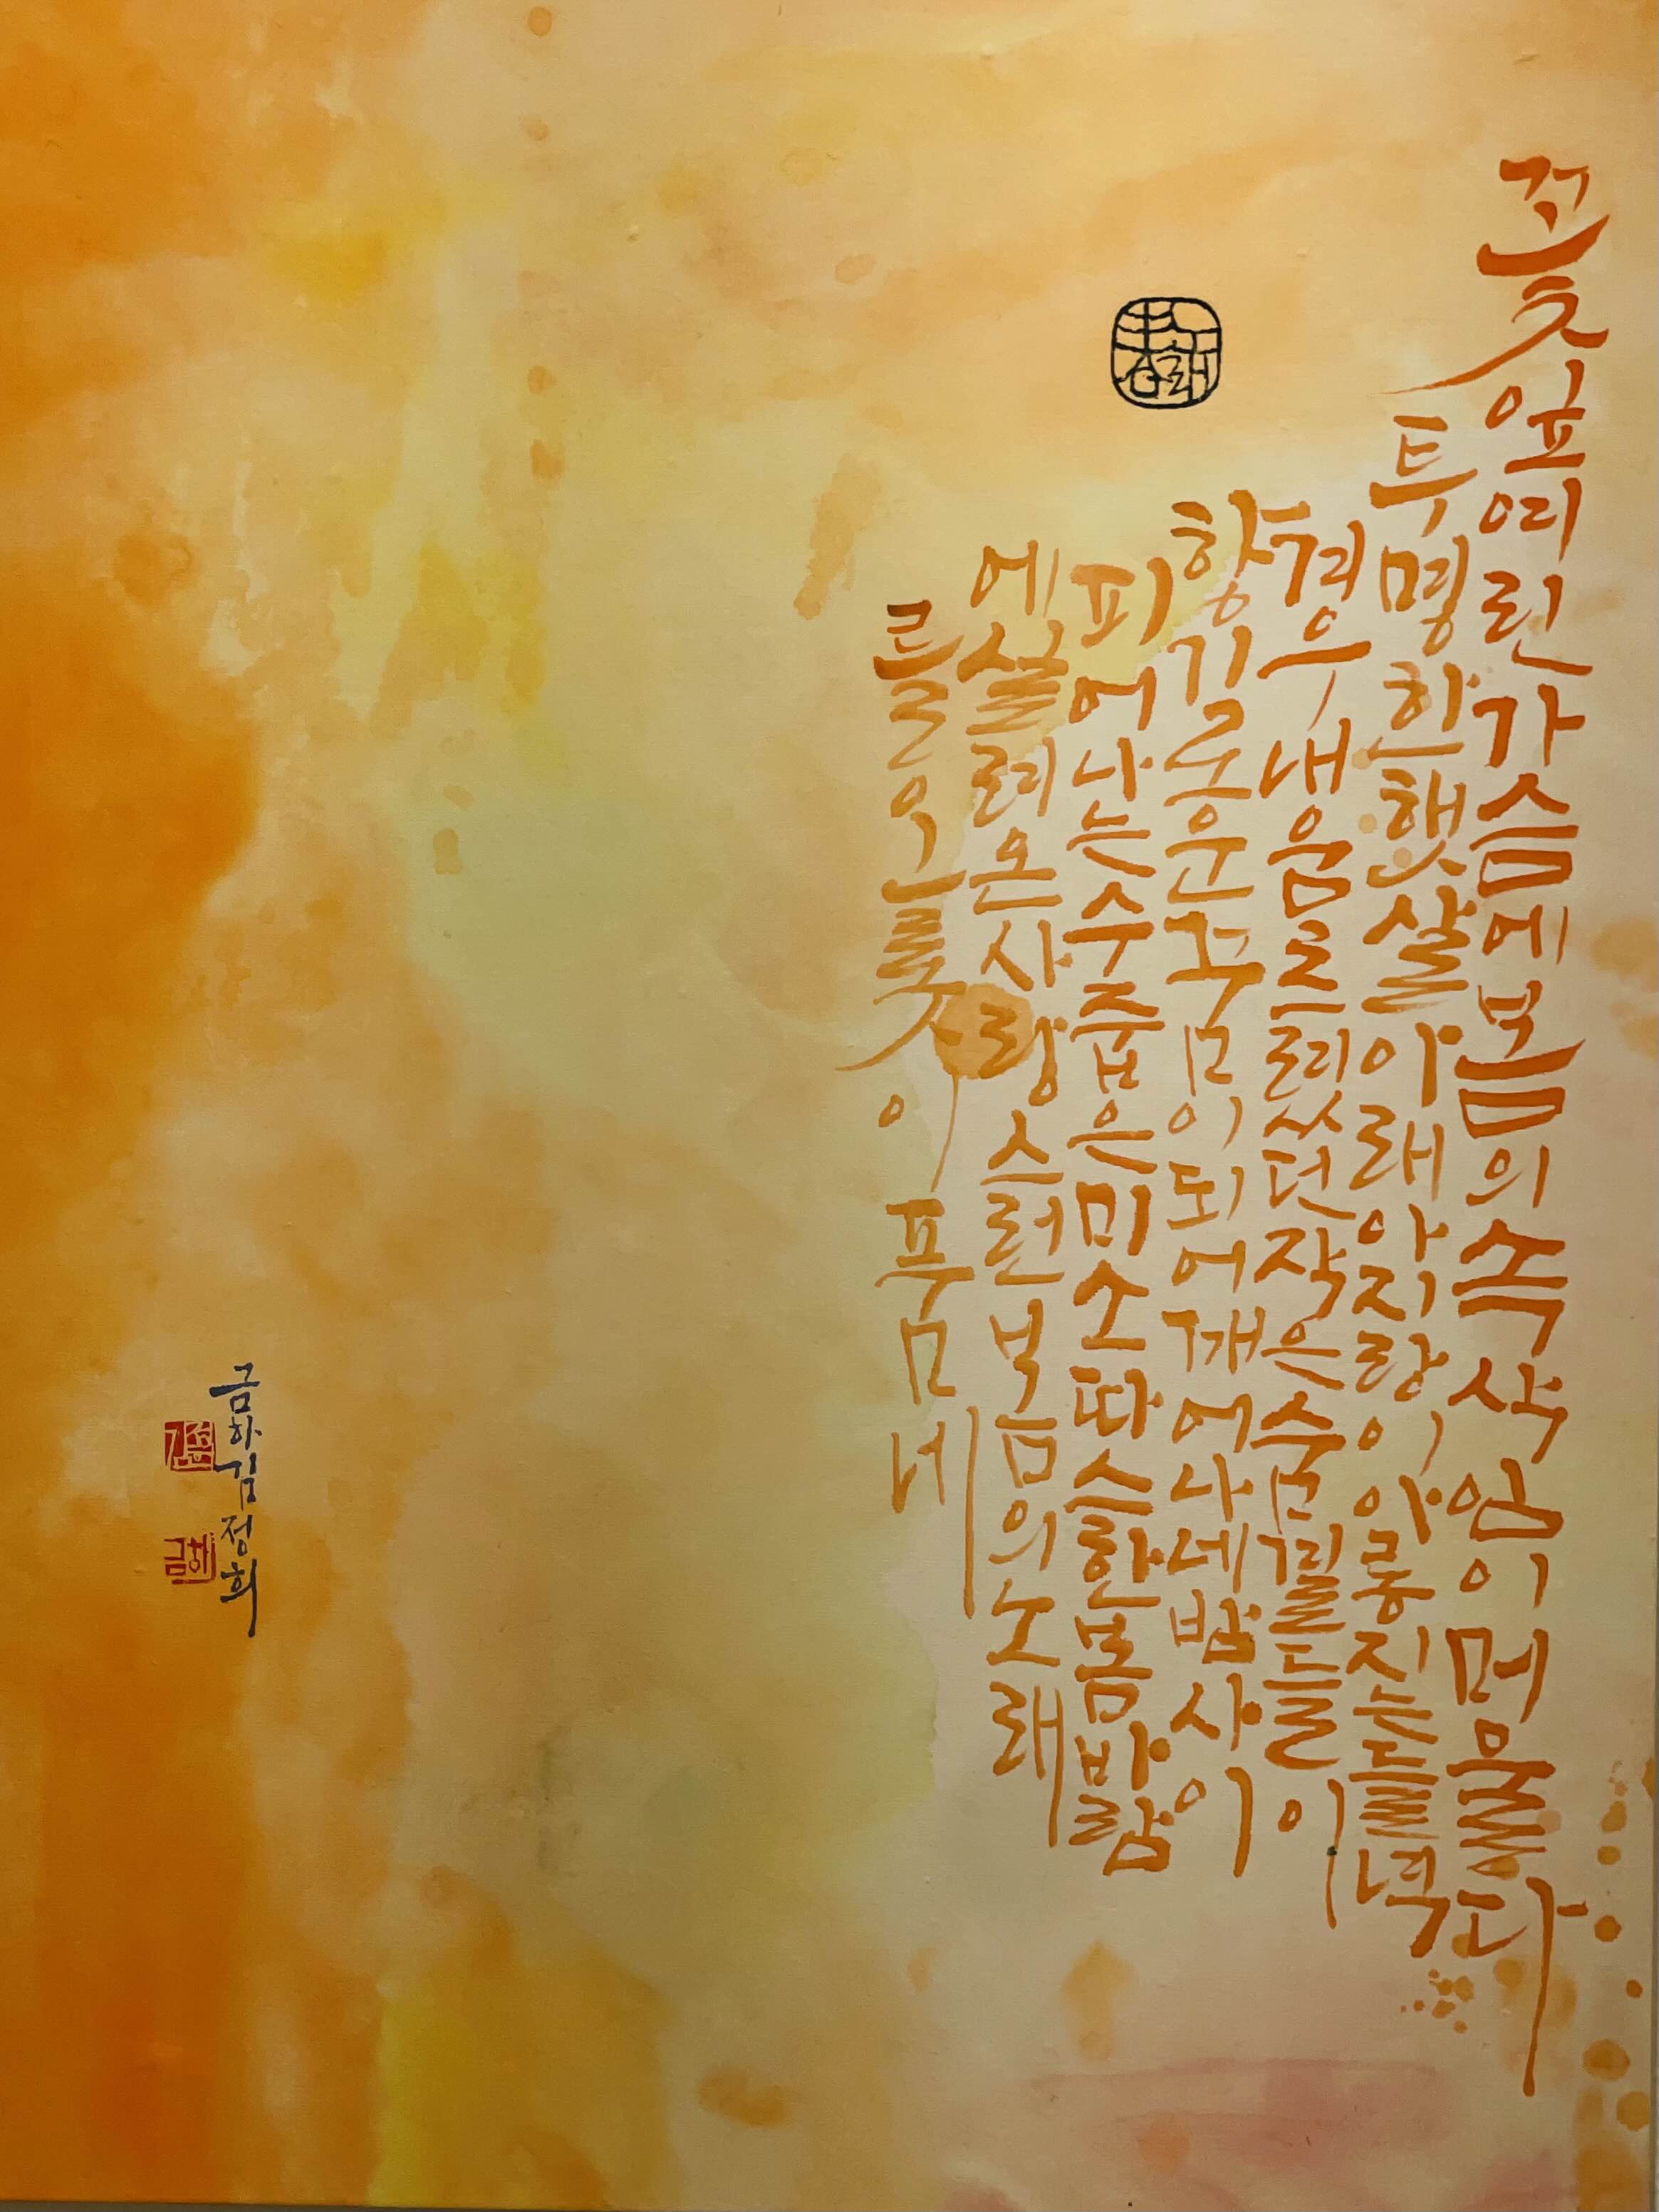 꽃잎 여린 가슴에 봄의 속삭임이 머물다
투명한 햇살 아래 아지랑이 아롱지는 들녘
겨우내 움츠렸던 작은 숨결들이
향기로운 꿈이 되어 깨어나네 밤사이
피어나는 수줍은 미소 따스한 봄바람
에 실려온 사랑스런 봄의 노래
를 오롯이 품네
금하 김정희
금하